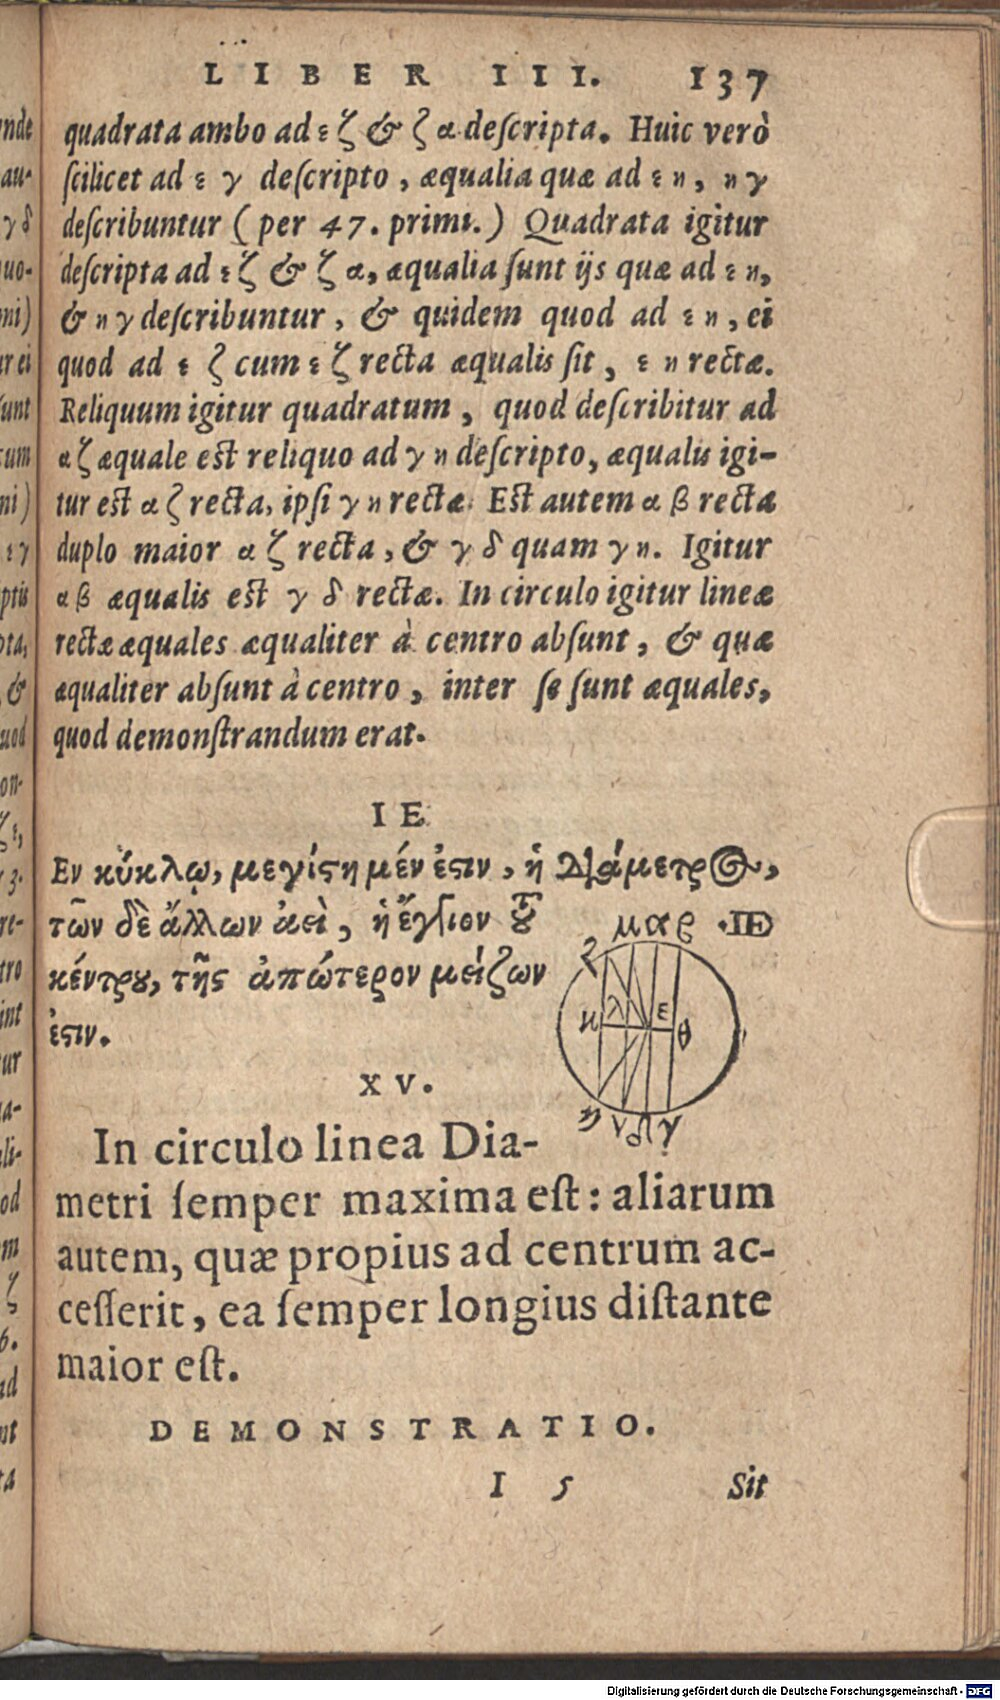 LIBER III. 137
quadrata ambo ad ε ζ & ζ α descripta. Huic verò
scilicet ad ε γ descripto, æqualia quæ ad ε η, η γ
describuntur (per 47. primi.) Quadrata igitur
descripta ad ε ζ & ζ α, æqualia sunt ijs quæ ad ε η,
& η γ describuntur, & quidem quod ad ε η, ei
quod ad ε ζ cum ε ζ recta æqualis sit, ε η rectæ.
Reliquum igitur quadratum, quod describitur ad
α ζ æquale est reliquo ad γ η descripto, æqualis igi-
tur est α ζ recta, ipsi γ η rectæ. Est autem α β recta
duplo maior α ζ recta, & γ δ quam γ η. Igitur
α β æqualis est γ δ rectæ. In circulo igitur lineæ
rectæ æquales æqualiter à centro absunt, & quæ
æqualiter absunt à centro, inter se sunt æquales,
quod demonstrandum erat.
IE
Εν κύκλῳ, μεγίϛη μέν ἐϛιν, ἡ Διάμετρος,
τῶν δὲ ἄλλων ἀεὶ, ἡ ἔγγιον τοῦ
κέντρου, τῆς ἀπώτερον μείζων
ἐϛιν.
μ α ρ ·ΙΕ
ζ
κ λ ε θ
η ν δ γ
XV.
In circulo linea Dia-
metri semper maxima est: aliarum
autem, quæ propius ad centrum ac-
cesserit, ea semper longius distante
maior est.
DEMONSTRATIO.
I 5 Sit
Digitalisierung gefördert durch die Deutsche Forschungsgemeinschaft - DFG